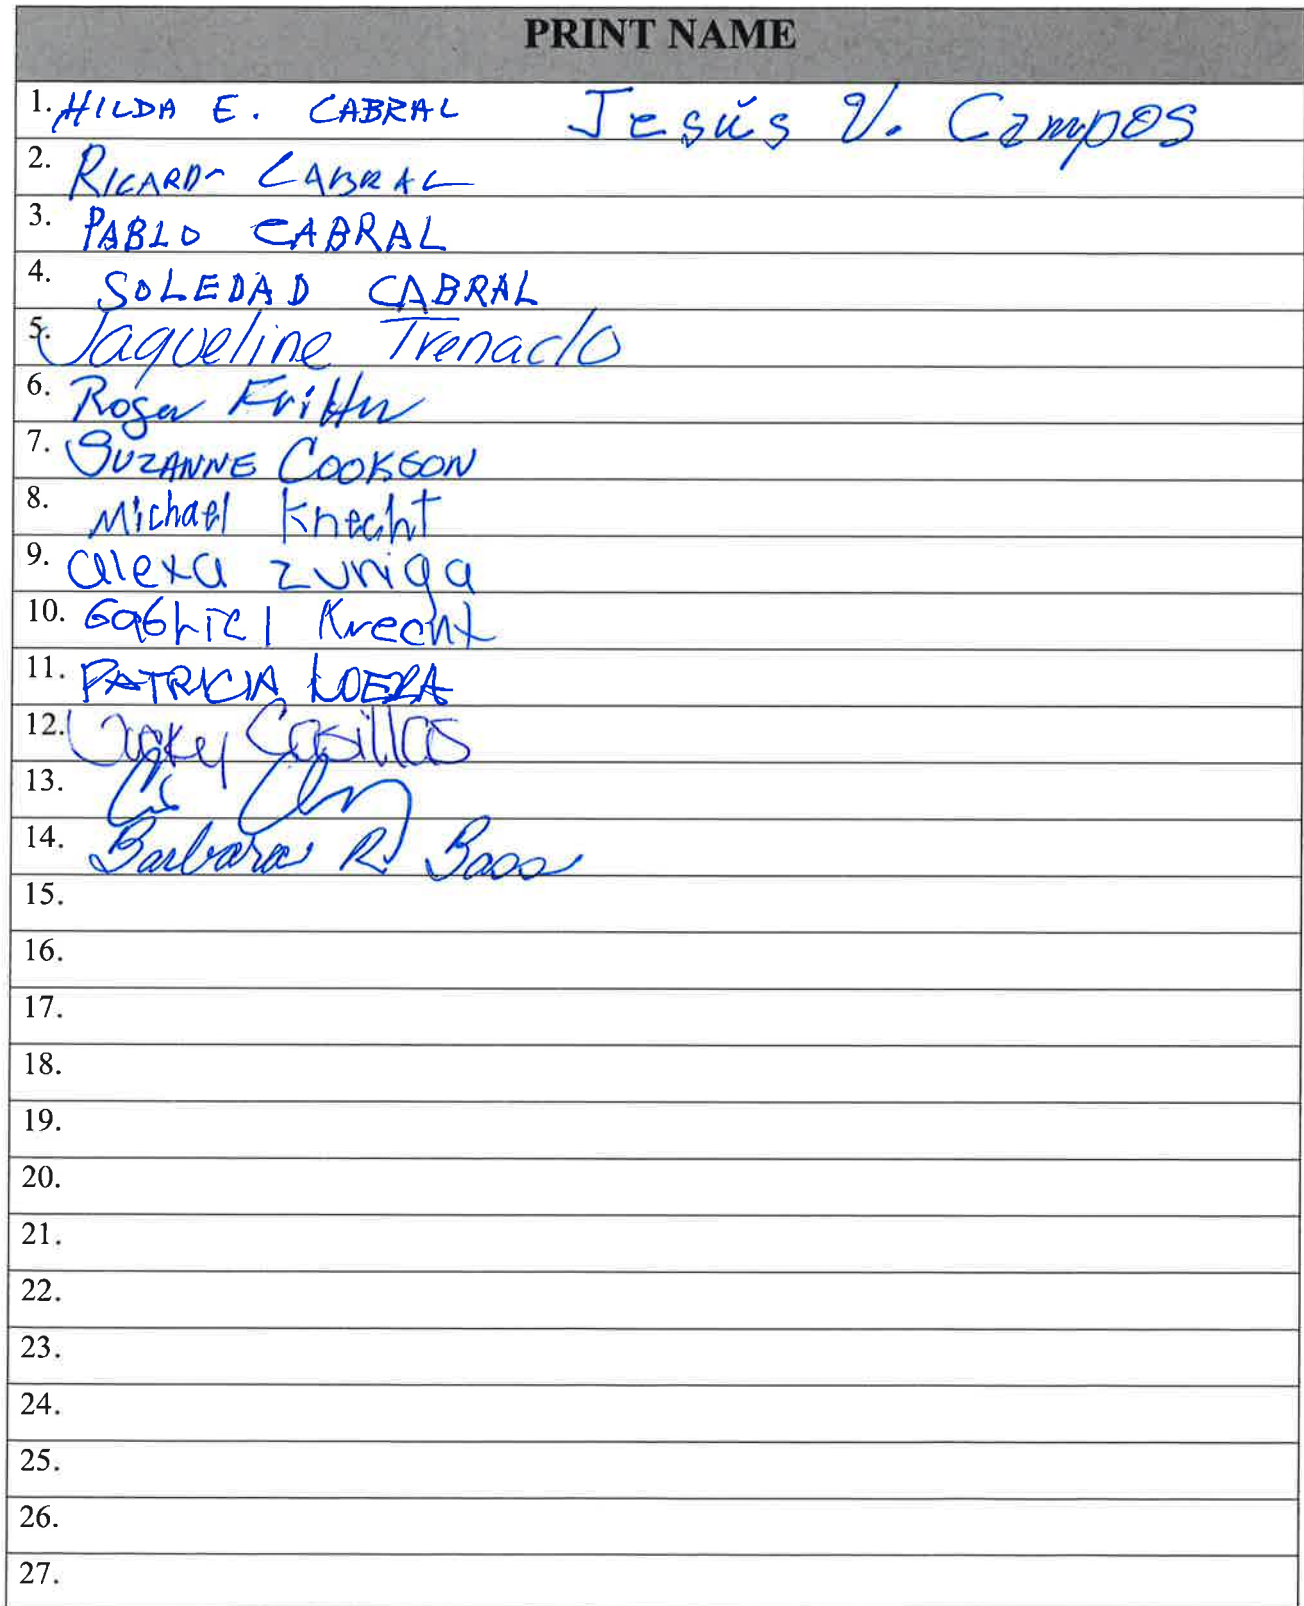 PRINT NAME
1. HILDA E. CABRAL Jesús V. Campos
2. RICARDO CABRAL
3. PABLO CABRAL
4. SOLEDAD CABRAL
5. Jaqueline Trenado
6. Roger
7. SUZANNE COOKSON
8. Michael Knecht
9. alexa zuniga
10. Gabriel Knecht
11. PATRICIA LOERA
12. Casillas
13.
14. Barbara R. Bass
15.
16.
17.
18.
19.
20.
21.
22.
23.
24.
25.
26.
27.